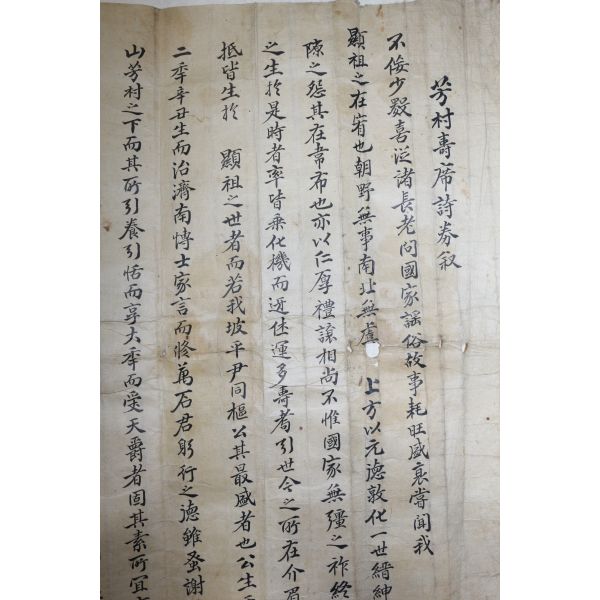 芳村壽席詩券叙
不佞少歲喜從諸長老問國家謠俗故事耗旺盛衰嘗聞我
顯祖之在宥也朝野無事南北無虞 上方以元德敦化一世縉紳
隙之怨其在韋布也亦以仁厚禮讓相尚不惟國家無彊之祚終
之生於是時者率皆乘化機而迓休運多壽耈引世令之所在介眉
抵皆生於 顯祖之世者而若我坡平尹同樞公其最盛者也公生
二年辛丑生而治濟南博士家言而修萬石君躬行之德雖蚤謝
山芳村之下而其所引養引恬而享大年而受天爵者固其素所宜